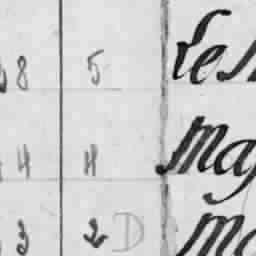 8 5 Le
4 4 Ma
3 2 D Ma